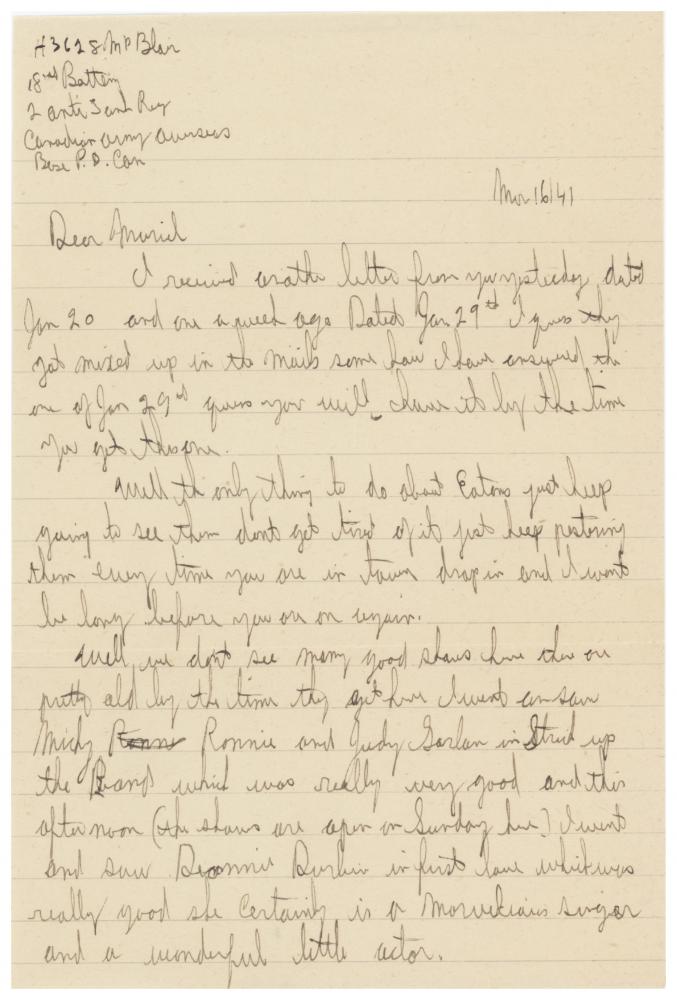 H3628 Mc P Blair
18nd Battery
2 anti Tank Reg
Canadian army overseas
Base P.O. Can
Mar 16/41
Dear Muriel
I received another letter from you yesterday dated
Jan 20 and one a week ago Dated Jan 29th I guess they
got mixed up in the mails some how I have answered the
one of Jan 29nd guess you will have it by the time
you get this one.
Well the only thing to do about Eatons just keep
going to see them dont get tired of it just keep pestering
them every time you are in town drop in and I wont
be long before you are on again.
Well we dont see many good shows here they are
pretty old by the time they get here I went an saw
Micky Ronnie and Judy Garlan in Strick up
the Band which was really very good and this
afternoon (the shows are open on Sunday here) I went
and saw Deannie Durbin in first love which was
really good she certainly is a marvelious singer
and a wonderful little actor.